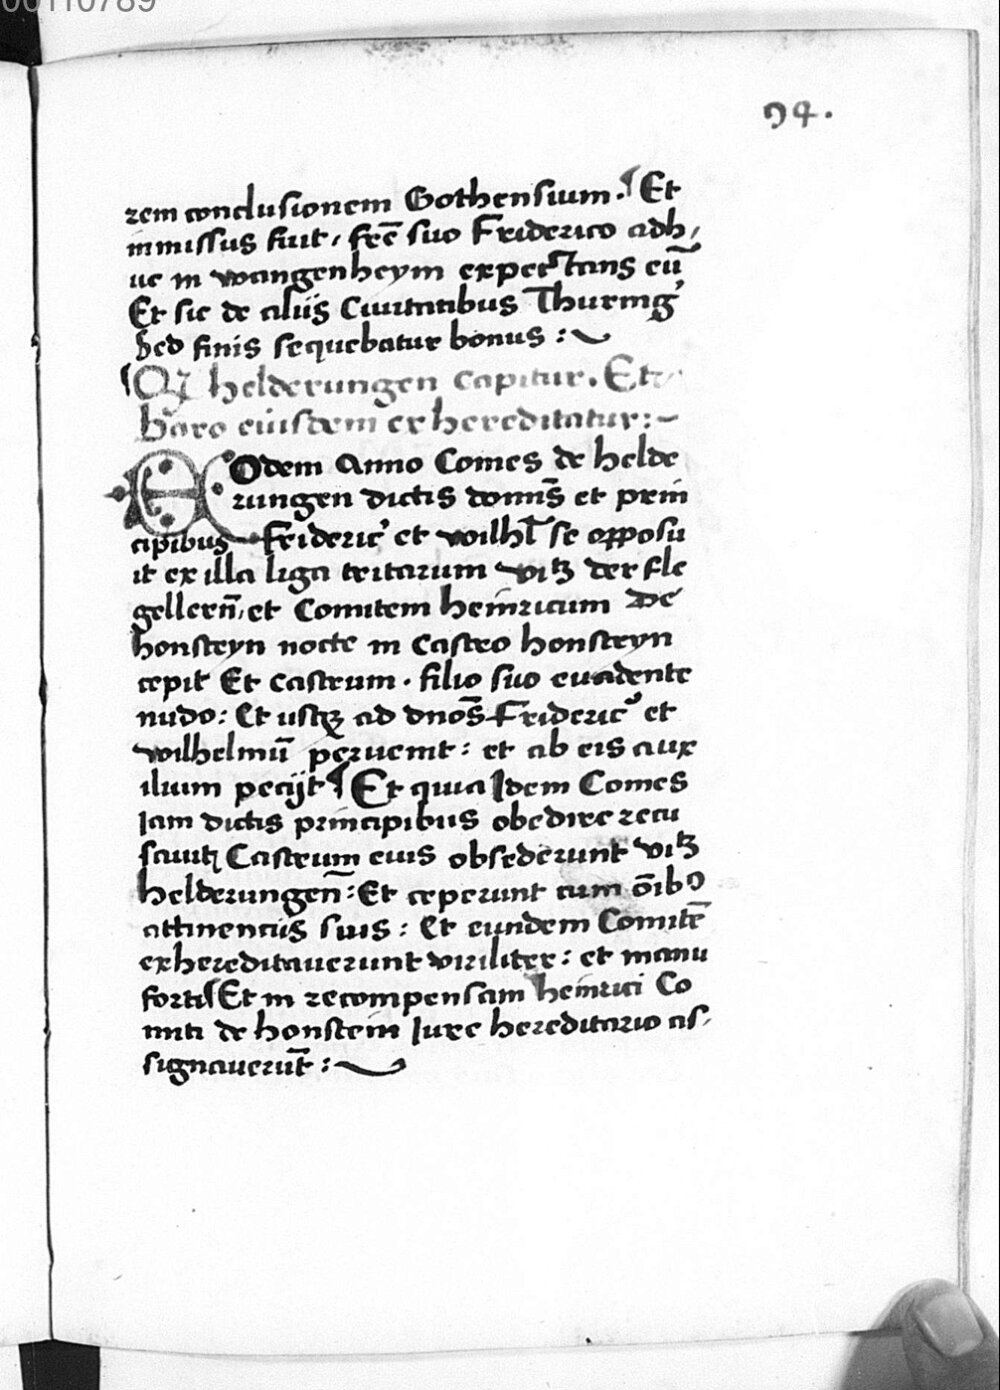 00110789
94.
rem conclusionem Gothensium. ¶ Et
inmissus fuit, fr̄e suo Friderico adh,
uc in wangenheym expectans eū
Et sic de alijs Ciuitatibus Thuring'
Sed finis sequebatur bonus :~
¶ helderungen capitur. Et
baro eiusdem exhereditatur:~
EOdem Anno Comes de helde
rungen dictis domīs et prin
cipibus Frideric' et wilhl̄ se opposu
it ex illa liga tritarum vitz der fle
gellern̄, et Comitem heinricum De
honsteyn nocte in Castro honsteyn
cepit Et castrum. filio suo euadente
nudo: Et usqz ad dnōs Frideric' et
wilhelmū peruenit: et ab eis aux
ilium peciit ¶ Et quia Idem Comes
Iam dictis principibus obedire recu
sauit Castrum eius obsederunt vitz
helderungen̄: Et ceperunt cum ōib9
attinenciis suis: Et eundem Comitē
exhereditauerunt viriliter: et manu
forti ¶ Et in recompensam heinrici Co
miti de honstein Iure hereditario as,
signauerūt :~